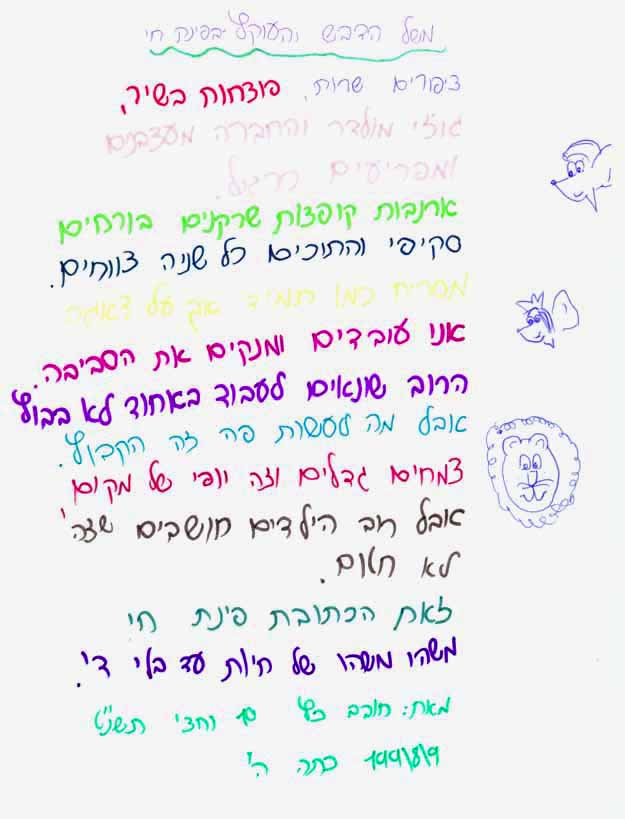 משל הדבש והעוקץ בפינת חי
ציפורים שרות, פוצחות בשיר,
מולדר והחבורה מעצבנים
ומפריעים כרגיל.
ארנבות קופצות שרקנים בורחים
סקיפי והתוכים כל שניה צווחים.
מסריח כמו תמיד אף על
אנו עובדים ומנקים את הסביבה.
הרוב שונאים לעבוד באחוד לא בבוץ
אבל מה לעשות פה זה הקבוץ.
צמחים גדלים וזה יופי של מקום
אבל רוב הילדים חושבים שזה
לא חלום.
זאת הכתובת פינת חי
משהו משהו של חיות עד בלי די.
מאת: כץ 10 וחצי תשנ"ט
1999\8\9 כתה ה'